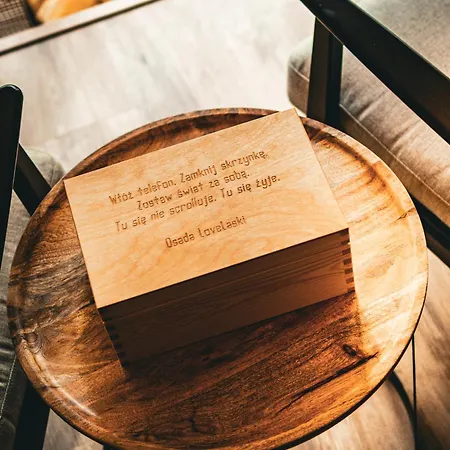 Włóż telefon. Zamknij skrzynkę.
Zostaw świat za sobą.
Tu się nie scrolluje. Tu się żyje.
Osada Lovelaski